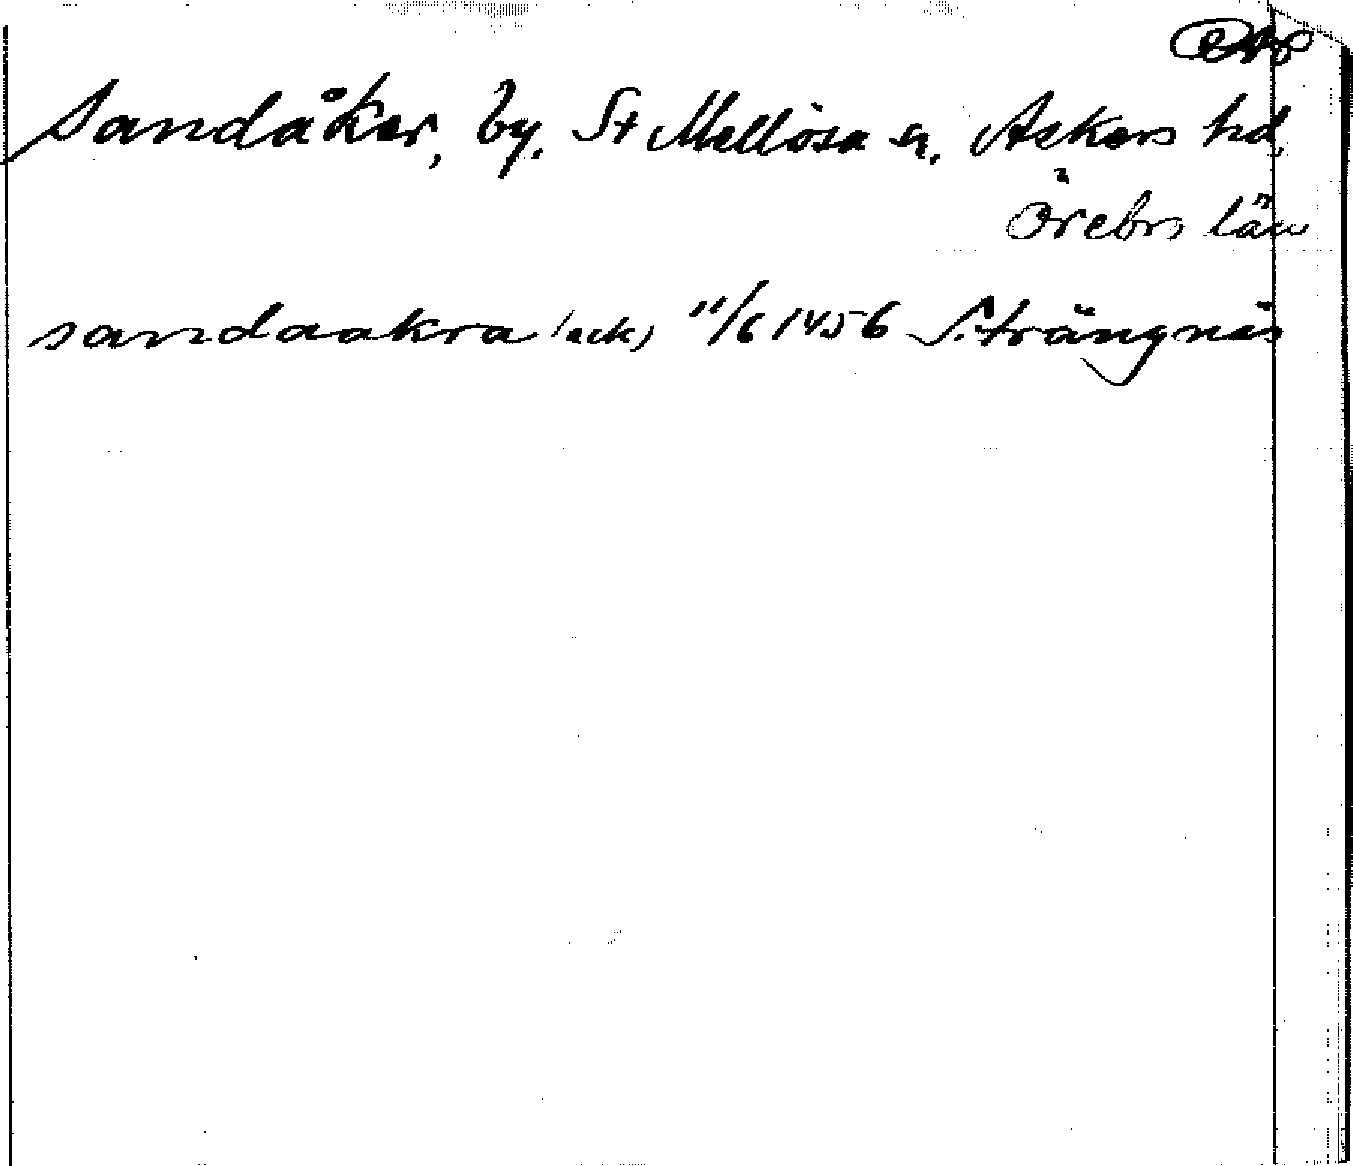 Sandåker, by, St Mellösa sn, Askers hd,
Örebro län
sandaakra (ack) 11/6 1456 Strängnäs